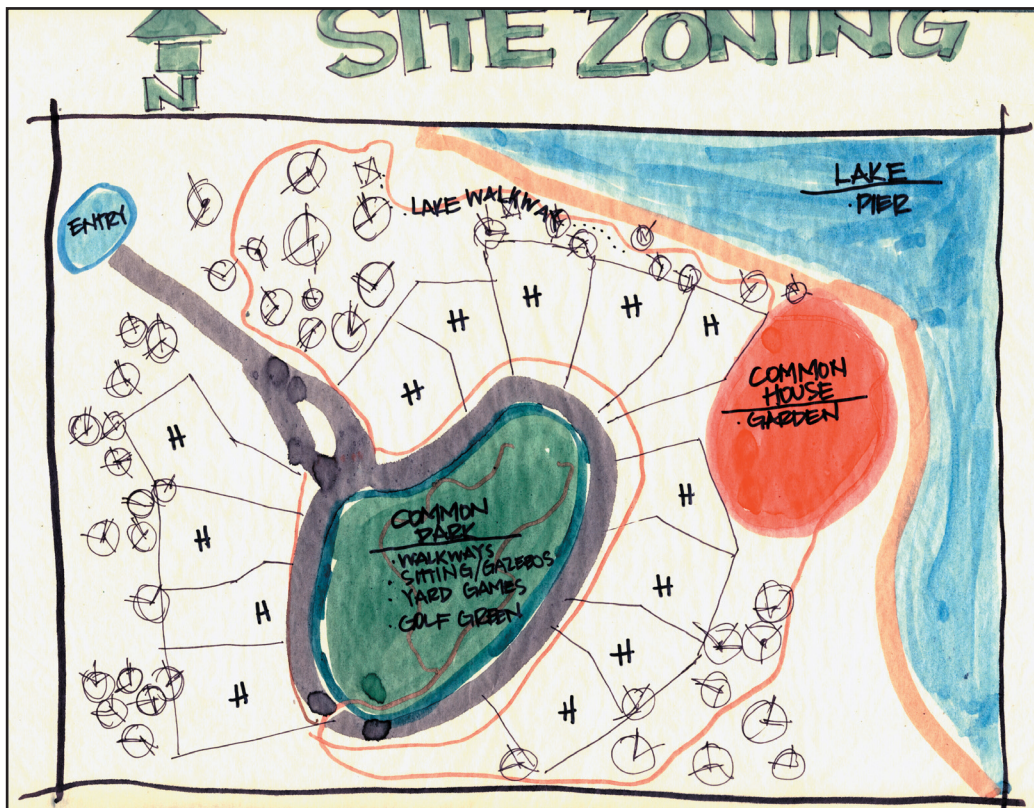 SITE ZONING
N
LAKE
· PIER
ENTRY
· LAKE WALKWAY
H
H
H
H
H
COMMON
HOUSE
· GARDEN
H
H
H
COMMON
PARK
· WALKWAYS
· SITTING/GAZEBOS
· YARD GAMES
· GOLF GREEN
H
H
H
H
H